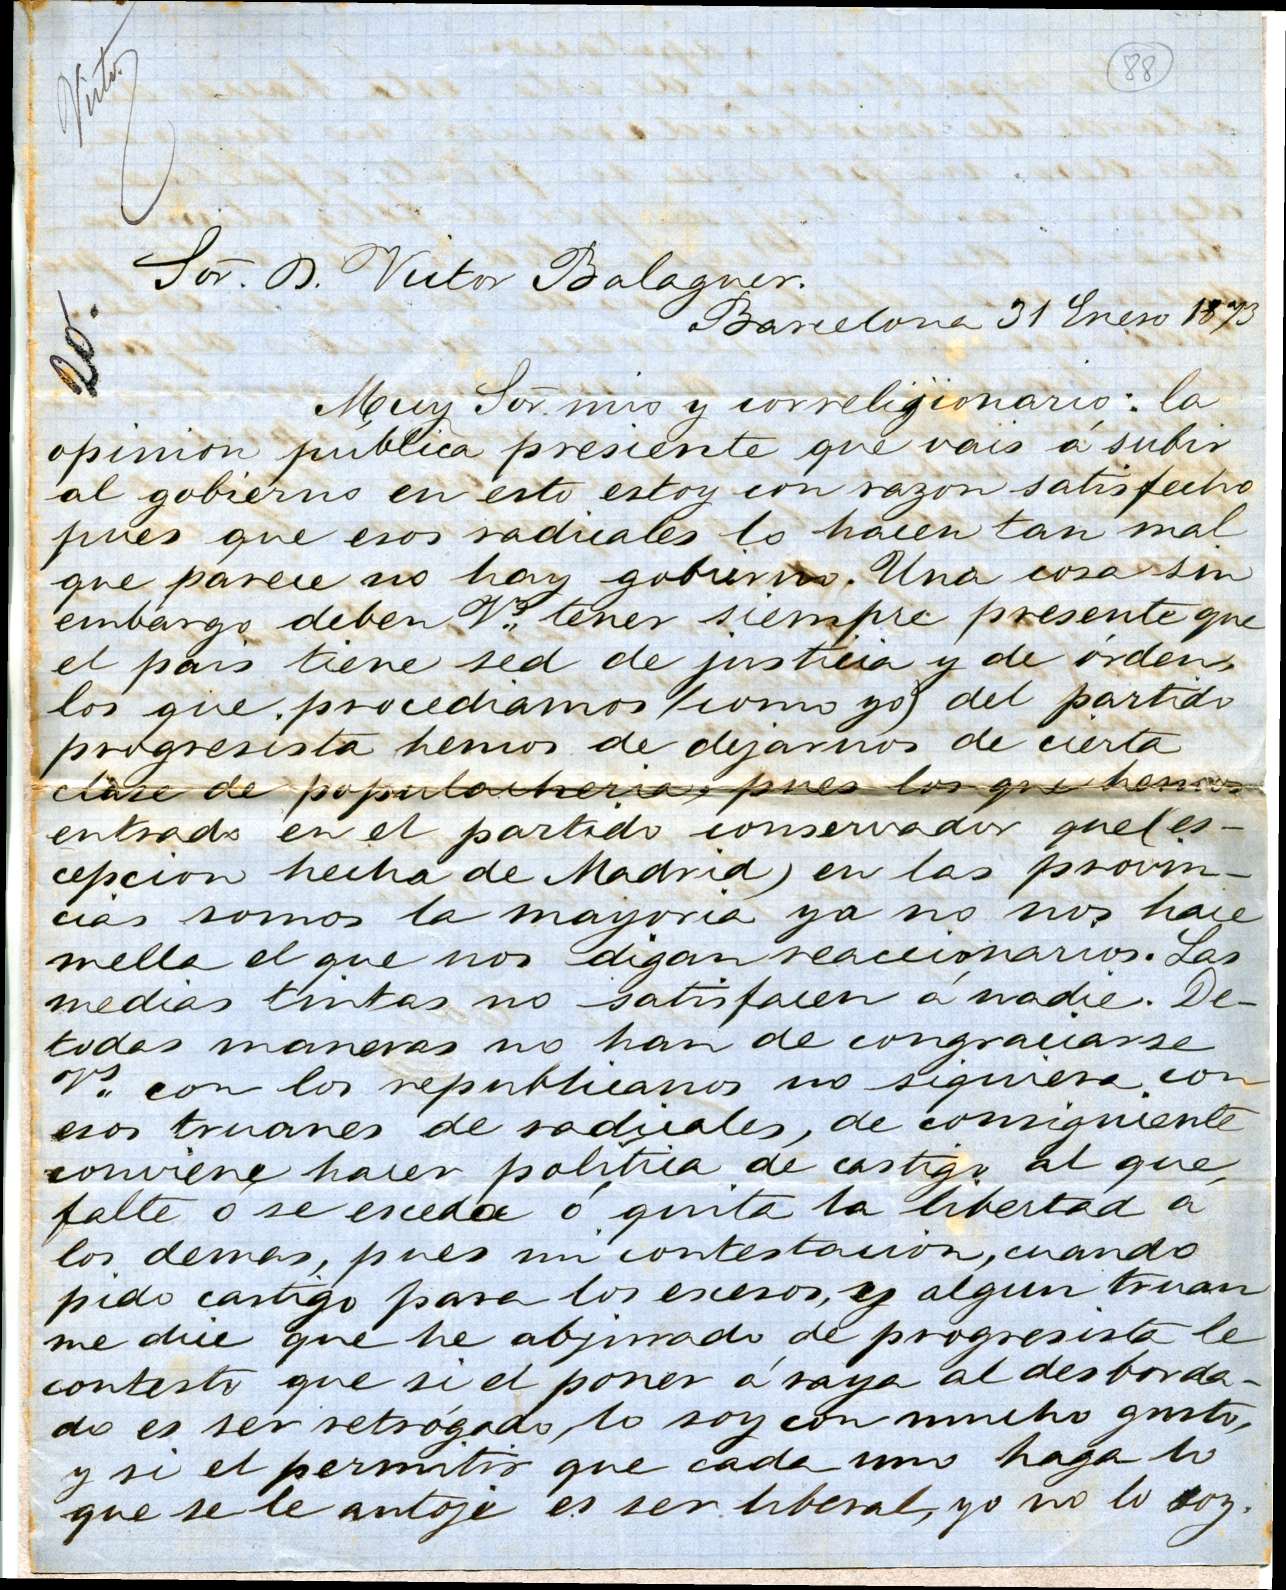 Visto.
88
20.
Sor. D. Victor Balaguer.
Barcelona 31 Enero 1873
Muy Sor. mio y correligionario: la
opinion pública presiente que vais á subir
al gobierno en esto estoy con razon satisfecho
pues que esos radicales lo hacen tan mal
que parece no hay gobierno. Una cosa sin
embargo deben Vs. tener siempre presente que
el pais tiene sed de justicia y de órden,
los que procediamos (como yo) del partido
progresista hemos de dejarnos de cierta
clase de populacheria, pues los que hemos
entrado en el partido conservador que (es-
cepcion hecha de Madrid) en las provin-
cias somos la mayoria ya no nos hace
mella el que nos digan reaccionarios. Las
medias tintas no satisfacen á nadie. De-
todas maneras no han de congraciarse
Vs. con los republicanos no siquiera con
esos truanes de radicales, de consiguiente
conviene hacer política de castigo al que
falte ó se esceda ó quita la libertad á
los demas, pues mi contestacion, cuando
pido castigo para los escesos, y algun truan
me dice que he abjurado de progresista le
contesto que si el poner á raya al desborda-
do es ser retrógado, lo soy con mucho gusto,
y si el permitir que cada uno haga lo
que se le antoje es ser liberal, yo no lo soy.